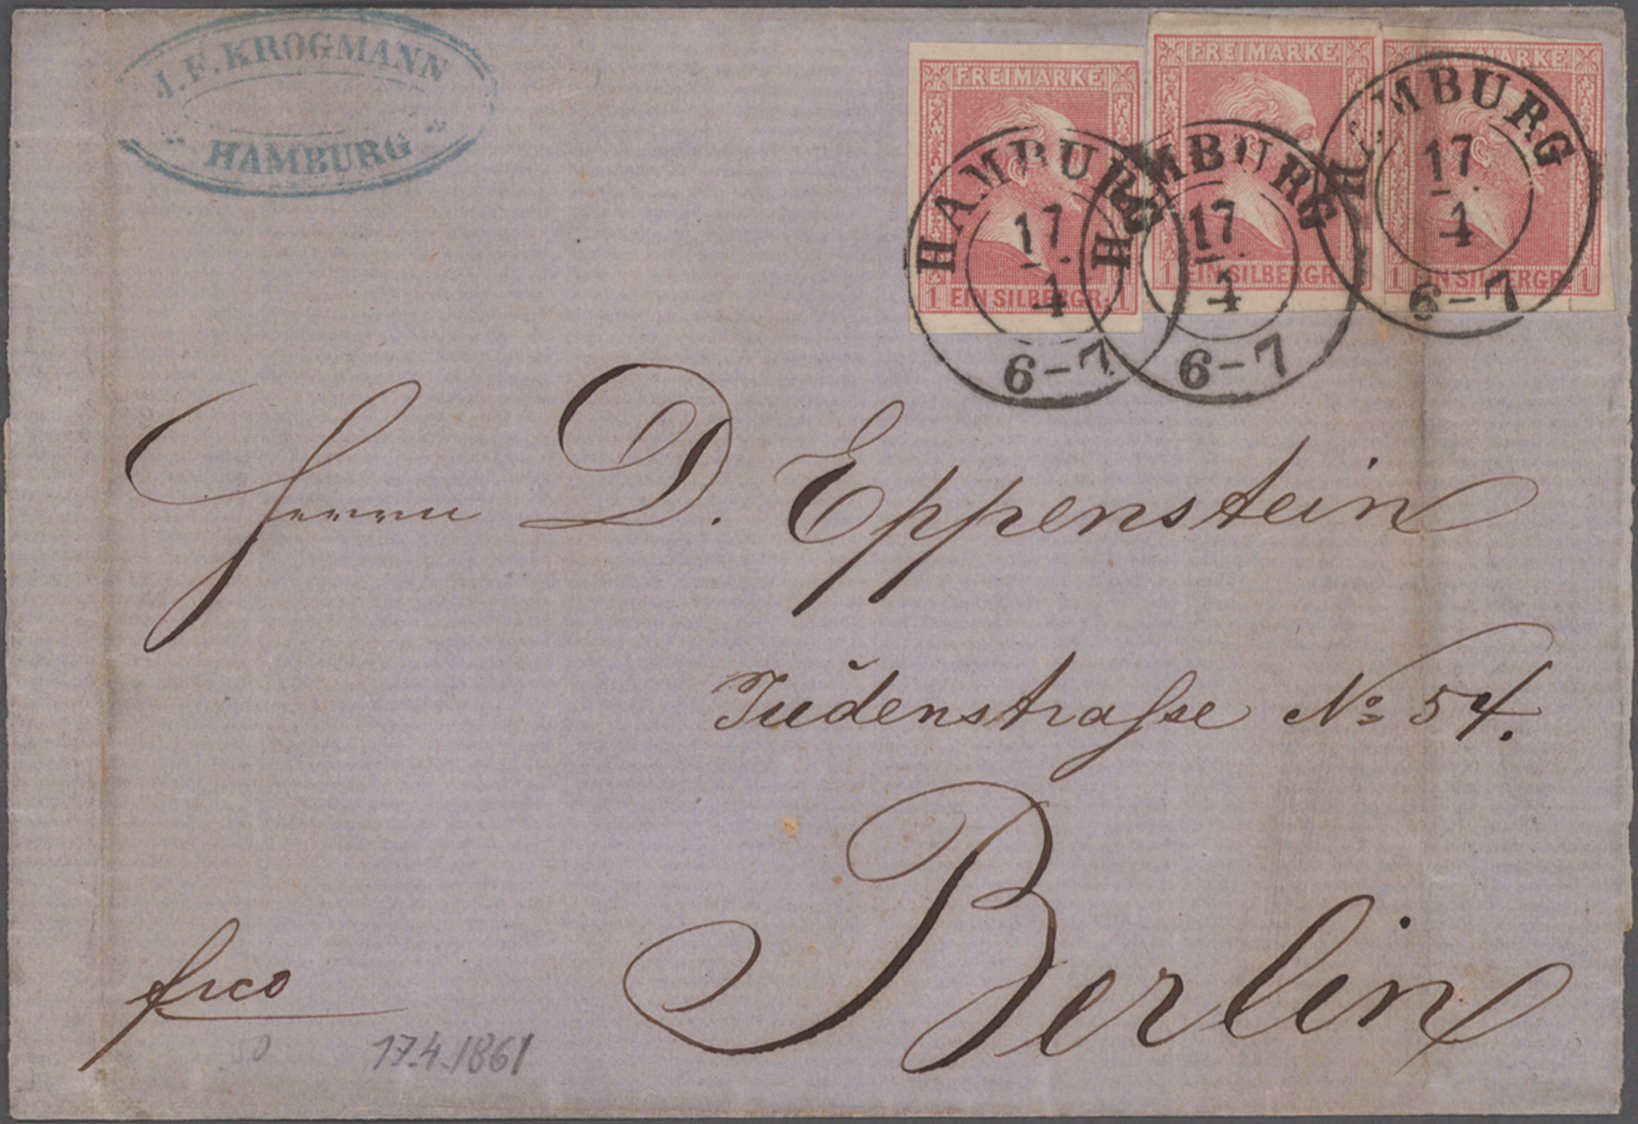 J. F. KROGMANN
HAMBURG
FREIMARKE
1 EIN SILBERGR. 1
FREIMARKE
1 EIN SILBERGR. 1
FREIMARKE
1 EIN SILBERGR. 1
HAMBURG
17
4
6-7
HAMBURG
17
4
6-7
HAMBURG
17
4
6-7
Herrn D. Eppenstein
Judenstraſse No 54.
Berlin
frco
17.4.1861